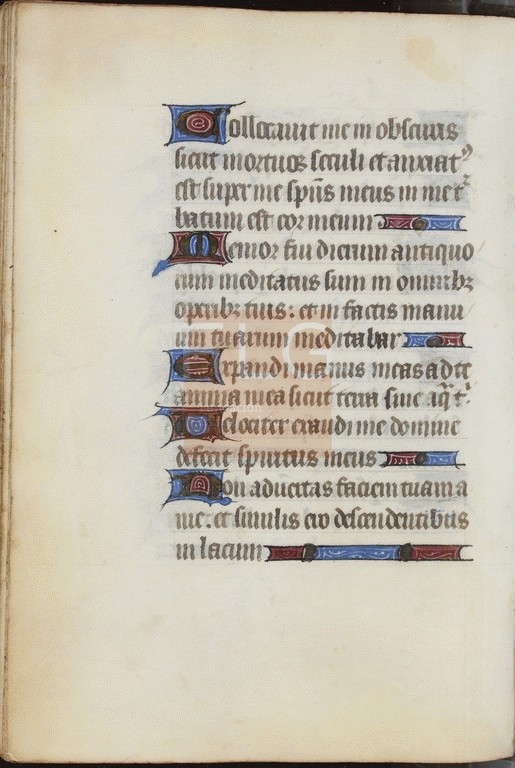 Collocavit me in obscuris
sicut mortuos seculi et anxiat⁹
est super me sp̄us meus in me t²
batum est cor meum
Memor fui dierum antiquo
rum meditatus sum in omnibꝫ
operibꝫ tuis: et in factis manu
um tuarum meditabar
Expandi manus meas ad te
anima mea sicut terra sine aq̄ t̄
Velociter exaudi me domine
defecit spiritus meus
Non avertas faciem tuam a
me: et similis ero descendentibus
in lacum